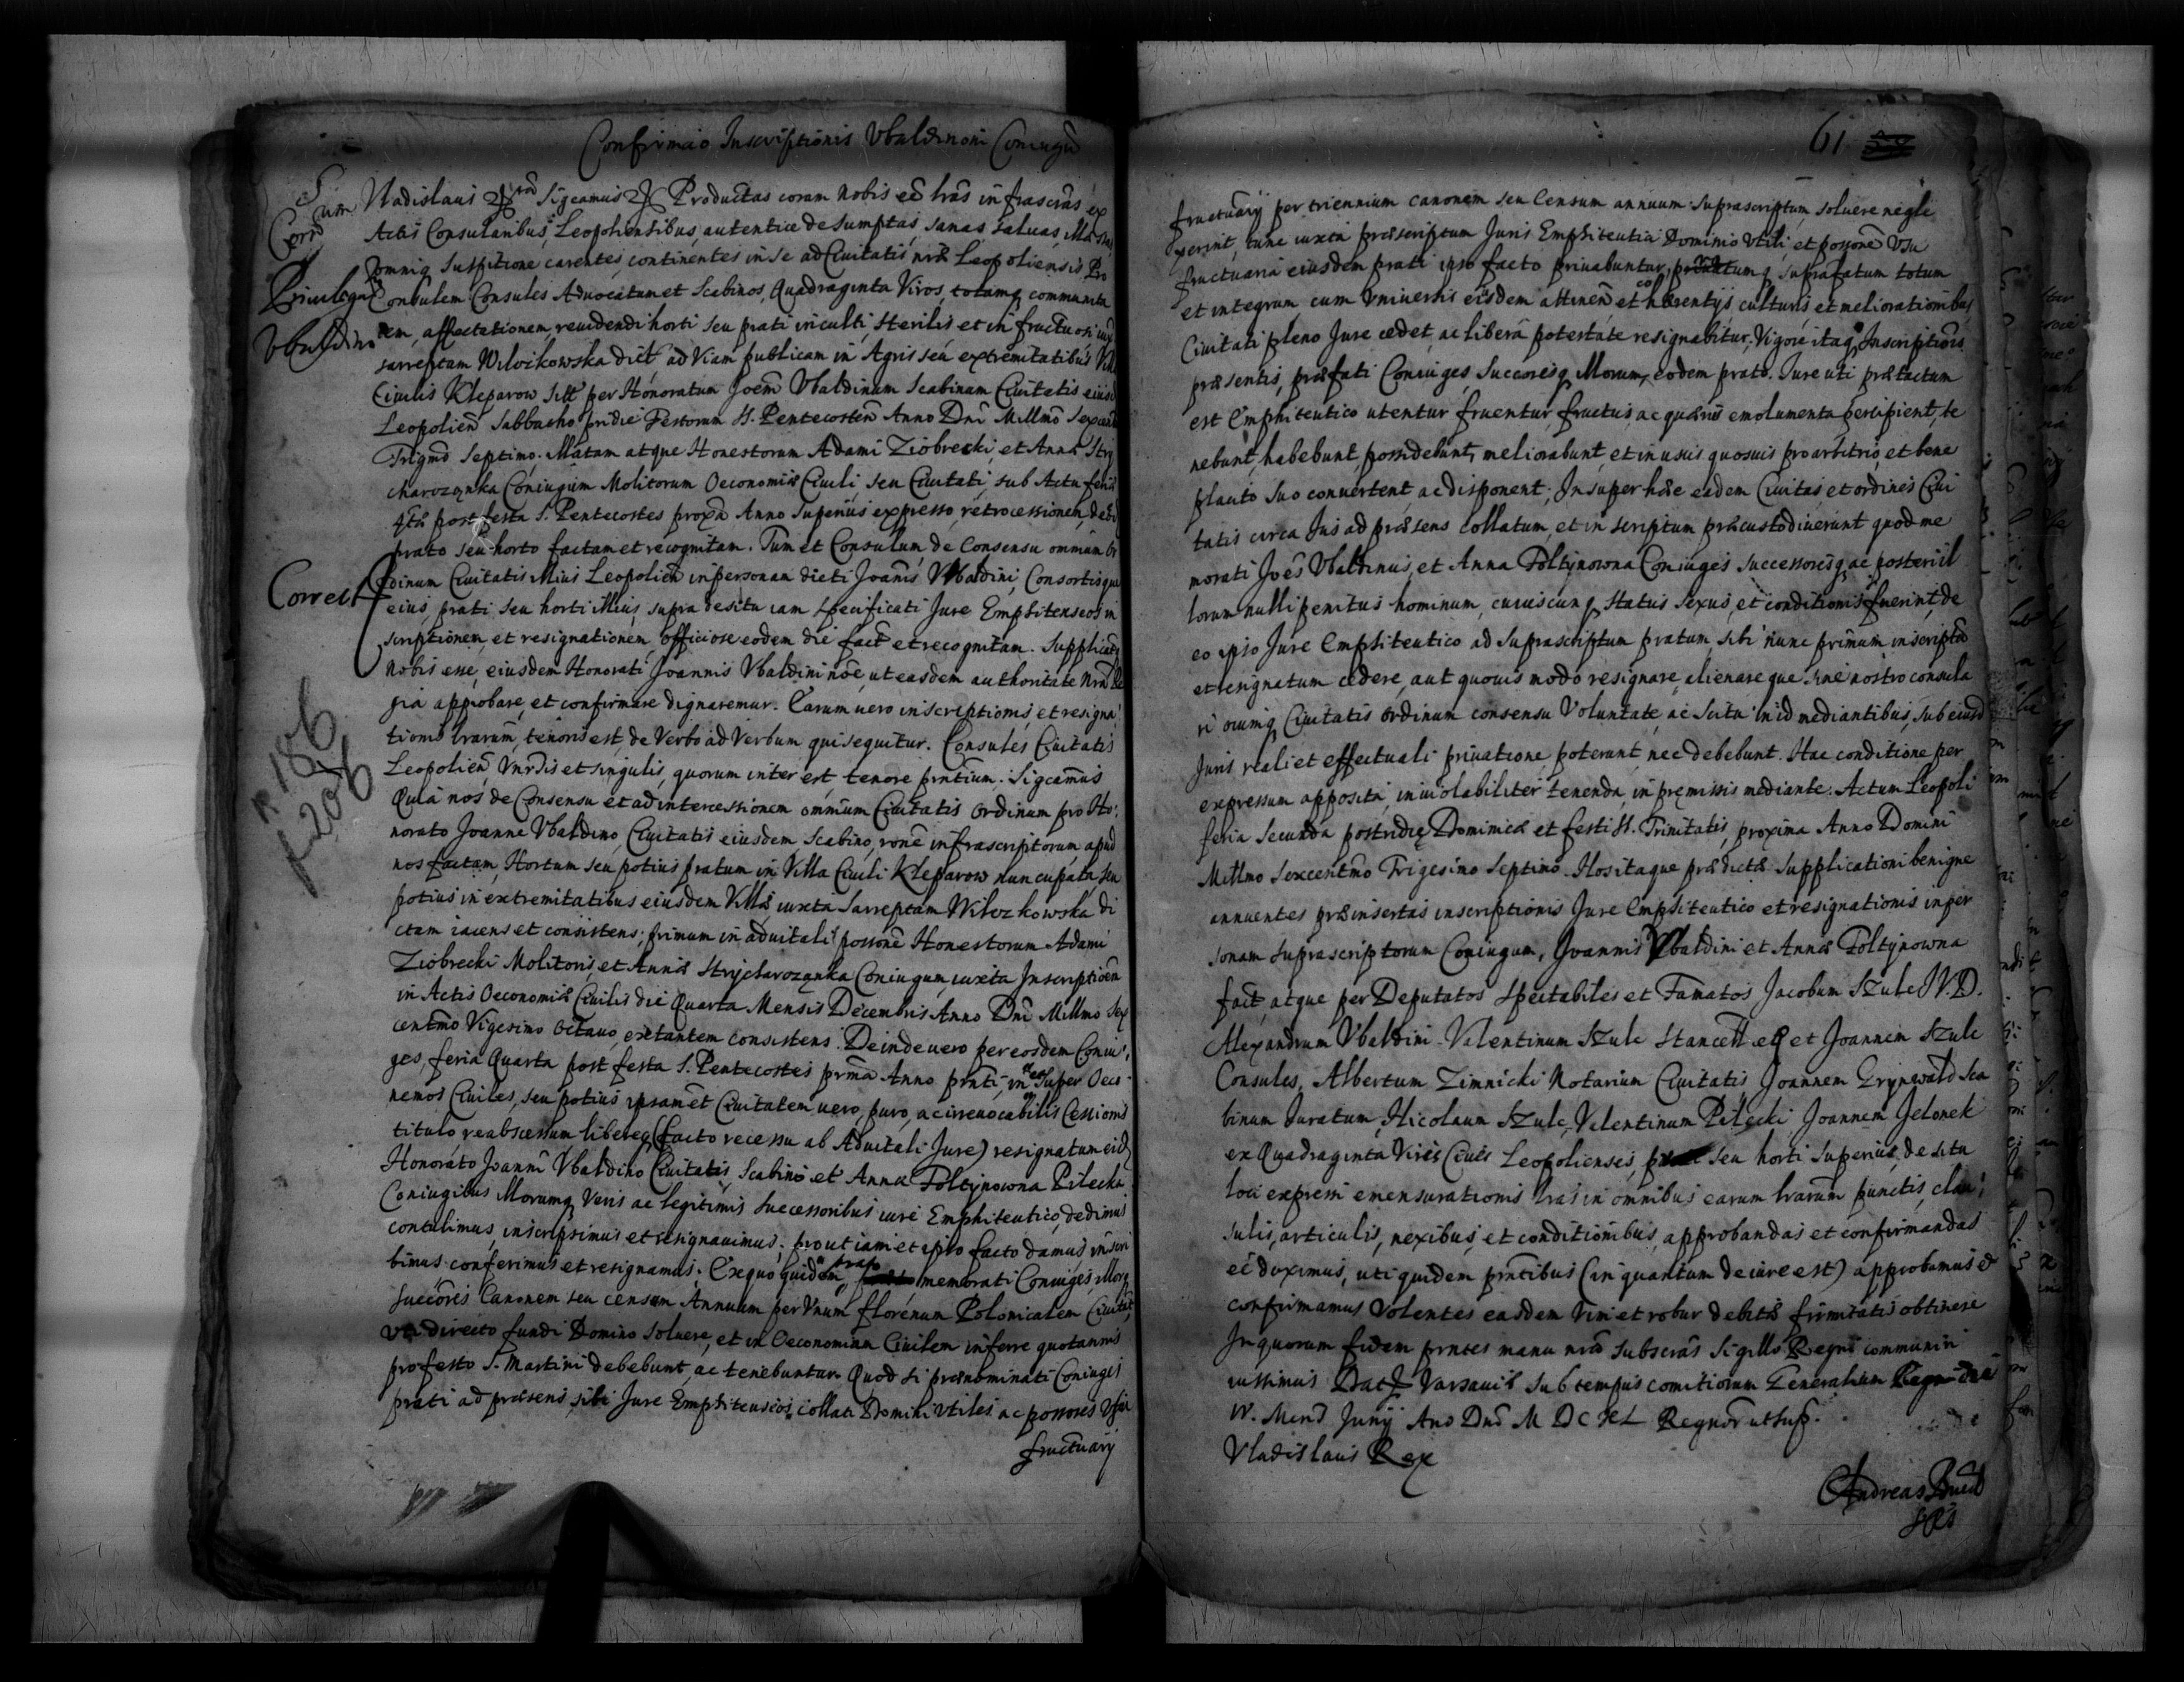 Confirmao Inscriptionis Vbaldinoni Coniugũ
Vladislaus Sigcamus Productas coram nobis eẽ lras infrascras ex
Actis Consularibus Leopoliensibus, autentice desumptas, sanas saluas, illæsas
omniq Suspitione carentes, continentes in se ad Ciuitatis nræ Leopoliensis Pro
Consulem Consules Aduocatum et Scabinos, Quadraginta Viros, totamq communita
tem, affectationem, reuidendi horti seu prati inculti, sterilis et infructuosi
sarreptam Wilczkowska dict ad Viam publicam in Agris seu extremitatibus
Ciuilis Kleparow sitt per Honoratum Joem Vbaldinum Scabinum Ciuitatis eiusd
Leopolien Sabbatho pridie Festorum S. Pentecosten Anno Dni Millmo Sexcent
Trigmo Septimo. Illatam atque Honestorum Adami Ziobrecki et Annæ Stry
charozanka Coniugum Molitorum Oeconomiæ Ciuili, seu Ciuitati, sub Actu feriæ
qtæ post festa S. Pentecostes proxã Anno Superius expresso, retrocessionem, de
prato seu horto factam et recognitam. Tum et Consulum de Consensu omnium Or
dinum Ciuitatis illius Leopolien in personam dicti Joannis Vbaldini, Consortisque
eius, prati seu horti illius, supra de situ iam specificati Jure Emphiteuseos in
scriptionem, et resignationem, officiose eodem die fact et recognitam. Supplicatũ
nobis esse, eiusdem Honorati Joannis Vbaldini nõe, ut easdem authoritate nra Re
gia approbare, et confirmare dignaremur. Earum uero inscriptionis, et resigna
tionis lrarum, tenoris est, de Verbo ad Verbum qui sequitur. Consules Ciuitatis
Leopolien Vnirsis et singulis, quorum inter est, tenore pntium. Sigcamus
Quia nos de Consensu et ad intercessionem omnium Ciuitatis Ordinum pro Ho
norato Joanne Vbaldino Ciuitatis eiusdem Scabino, rone infrascriptorum, apud
nos factam, Hortum seu potius pratum in Villa Ciuili Kleparow nuncupata seu
potius in extremitatibus eiusdem Villæ, iuxta Sarreptam Wilczkowska di
ctam iacens et consistens; primum in aduitali possone Honestorum Adami
Ziobrecki Molitoris, et Annæ Strycharozanka Coniugum, iuxta Inscriptioẽn
in Actis Oeconomiæ Ciuilis die Quarta Mensis Decembris Anno Dni Millmo Sex
centmo Vigesimo Octauo, extantem consistens. Deinde uero per eosdem Coniu
ges, feria Quarta post festa S. Pentecostes prma Anno pnti, in nos super Oeco
nemos Ciuiles, seu potius ipsam et Ciuitatem uero, puro, ac irreuocabilis Cessionis
titulo, reabscessum libereq (facto recessu ab Aduitali Jure) resignatum eidẽ
Honorato Joanni Vbaldino Ciuitatis Scabino et Annæ Poltynowna Pilecka
Coniugibus illorumq Veris ac legitimis Successoribus iure Emphiteutico, dedimus
contulimus, inscripsimus et resignauimus, prout iam et ipso facto damus inscri
bimus conferimus et resignamus. Exquo quidem prato memorati Coniuges, illorq
Succores Canonem seu censum Annuum per Vnum florenum Polonicalem Ciuitati,
Vti directo fundi Domino soluere, et in Oeconomiam Ciuilem inferre quotannis
pro festo S. Martini debebunt, ac tenebuntur. Quod si prænominati Coniuges
prati ad præsens sibi Jure Emphiteuseos collati Domini vtiles ac possores Vsu
fructuarÿ
Cum
Privilegiũ
Vbaldini
Correct
p 186
f. 206
61.
fructuarÿ per triennium canonem seu Censum annuum suprascriptum, soluere negle
xerint, tunc iuxta præscriptum Juris Emphiteutici Dominio Vtili, et possone Vsu
fructuaria eiusdem prati ipso facto priuabuntur, pratumq suprafatum totum
et integrum cum Vniuersis eisdem attinen et cohærentijs, culturis et meliorationibus
Ciuitati pleno Jure cedet, ac libera potestate resignabitur. Vigore itaq Inscriptionis
præsentis, præfati Coniuges, Succoresq illorum, eodem prato. Jure uti præfactum
est Emphiteutico utentur fruentur, fructus, ac quæuis emolumenta percipient, te
nebunt, habebunt, possidebunt, meliorabunt, et in usus quosuis pro arbitrio, et bene
placito suo conuertent, ac disponent; Insuper hoc eadem Ciuitas, et ordines Ciui
tatis circa Jus ad præsens collatum, et in scriptum præcustodiuerunt quod me
morati Joes Vbaldinus, et Anna Poltynowna Coniuges successoresq, ac posteri il
lorum nulli penitus hominum, cuiuscunq status sexus, et conditionis fuerint, de
eo ipso Jure Emphiteutico ad suprascriptum pratum sibi nunc primum inscripto
et resignatum cedere, aut quouis modo resignare, alienareque sine nostro consula
ri oiumq Ciuitatis Ordinum consensu Voluntate, ac Scitu in id mediantibus, sub eiusd
Juris reali et effectuali priuatione poterunt, nec debebunt. Hac conditione per
expressum apposita, inuiolabiliter tenenda, in præmissis mediante. Actum Leopoli
feria Secunda postridie Dominicæ et festi SS. Trinitatis, proxima Anno Domini
Millmo Sexcentmo Trigesimo Septimo. Nos itaque prædictæ Supplicationi benigne
annuentes præinsertas inscriptionis Jure Emphiteutico et resignationis in per
sonam suprascriptorum Coniugum, Joannis Vbaldini et Annæ Poltynowna
fact, atque per Deputatos Spectabiles et Famatos Jacobum Szulc IV.D.
Alexandrum Vbaldini Valentinum Szulc Stancell et Joannem Szulc
Consules, Albertum Zimnicki Notarium Ciuitatis Joannem Grynwald Sca
binum Juratum, Nicolaum Szulc, Valentinum Pilecki Joannem Jelonek
ex Quadraginta Viris Ciues Leopolienses, seu horti superius, de situ
loci expressi emensurationis lras in omnibus earum lrarum punctis, clau
sulis, articulis, nexibus, et conditionibus, approbandas et confirmandas
eẽ duximus, uti quidem pntibus (in quantum de iure est) approbamus et
confirmamus Volentes easdem Vim et robur debitæ firmitatis obtinere
In quorum fidem pntes manu nra subscras Sigillo Regni communiri
iussimus Dat Varsauiæ sub tempus comitiorum Generalium
IV. Mens Junÿ Ano Dni M DC XL Regnor ut sup.
Vladislaus Rex
Andreas